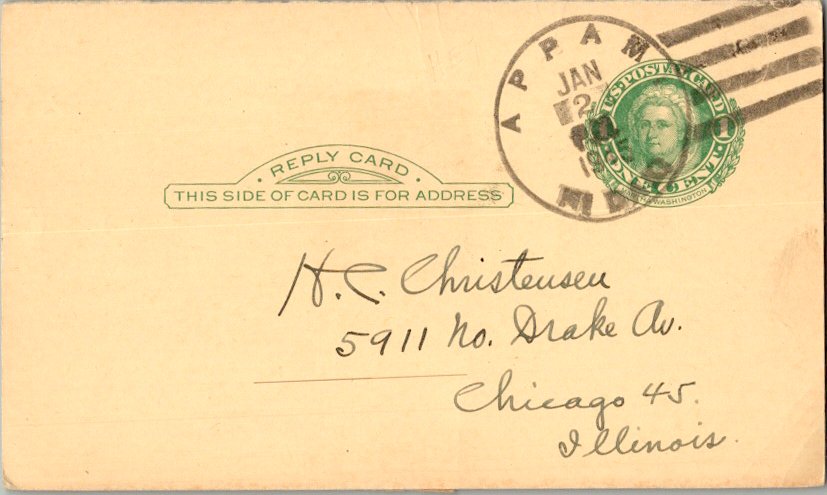 APPAM
JAN
2
N. D.
U.S. POSTAL CARD
1 1
ONE CENT
MARTHA WASHINGTON
· REPLY CARD ·
THIS SIDE OF CARD IS FOR ADDRESS
H. C. Christensen
5911 No. Drake Av.
Chicago 45.
Illinois.